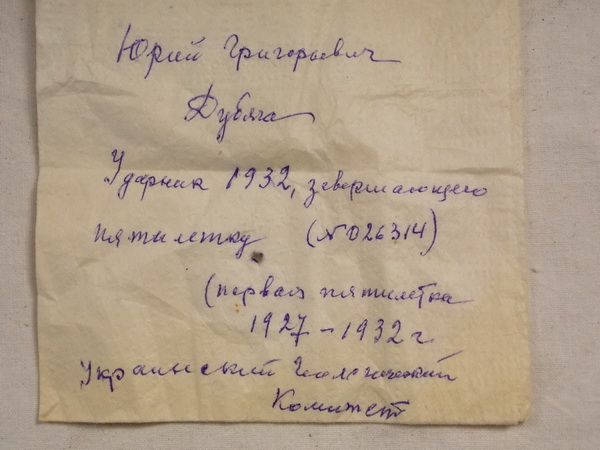 Юрий Григорьевич
Дубяга
Ударник 1932, завершающего
пятилетку (№026314)
(первая пятилетка
1927-1932 г.
Украинский Геологический
Комитет